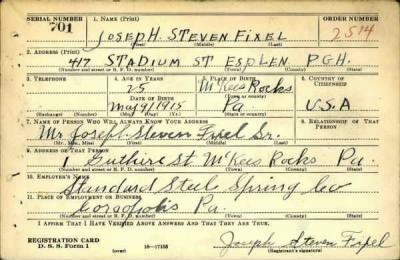 SERIAL NUMBER 1. NAME (Print) ORDER NUMBER
701 JOSEPH. STEVEN FIXEL 2514
(First) (Middle) (Last)
2. ADDRESS (Print)
417 STADIUM ST ESPLEN. PGH.
(Number and street or R. F. D. number) (Town) (County) (State)
3. TELEPHONE 4. AGE IN YEARS 5. PLACE OF BIRTH 6. COUNTRY OF CITIZENSHIP
25 McKees Rocks
DATE OF BIRTH (Town or county)
May 9 1915 Pa U.S.A
(Exchange) (Number) (Mo.) (Day) (Yr.) (State or country)
7. NAME OF PERSON WHO WILL ALWAYS KNOW YOUR ADDRESS 8. RELATIONSHIP OF THAT PERSON
Mr Joseph Steven Fixel Sr.
(Mr., Mrs., Miss) (First) (Middle) (Last)
9. ADDRESS OF THAT PERSON
1 Guthire St McKees Rocks Pa.
(Number and street or R. F. D. number) (Town) (County) (State)
10. EMPLOYER'S NAME
Standard Steel Spring Co
11. PLACE OF EMPLOYMENT OR BUSINESS
Coraopolis Pa.
(Number and street or R. F. D. number) (Town) (County) (State)
I AFFIRM THAT I HAVE VERIFIED ABOVE ANSWERS AND THAT THEY ARE TRUE.
REGISTRATION CARD
D. S. S. Form 1 (over) 16-17155 Joseph Steven Fixel
(Registrant's signature)